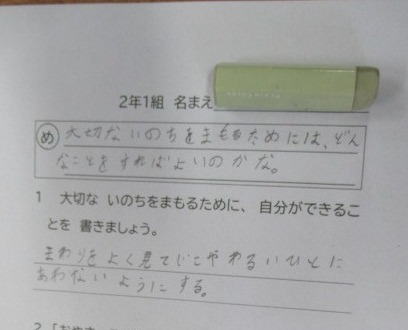 2年1組 名まえ
め 大切ないのちをまもるためには、どん
なことをすればよいのかな。
1 大切な いのちをまもるために、自分ができるこ
とを 書きましょう。
まわりを よく見てじこやわるいひとに
あわないようにする。